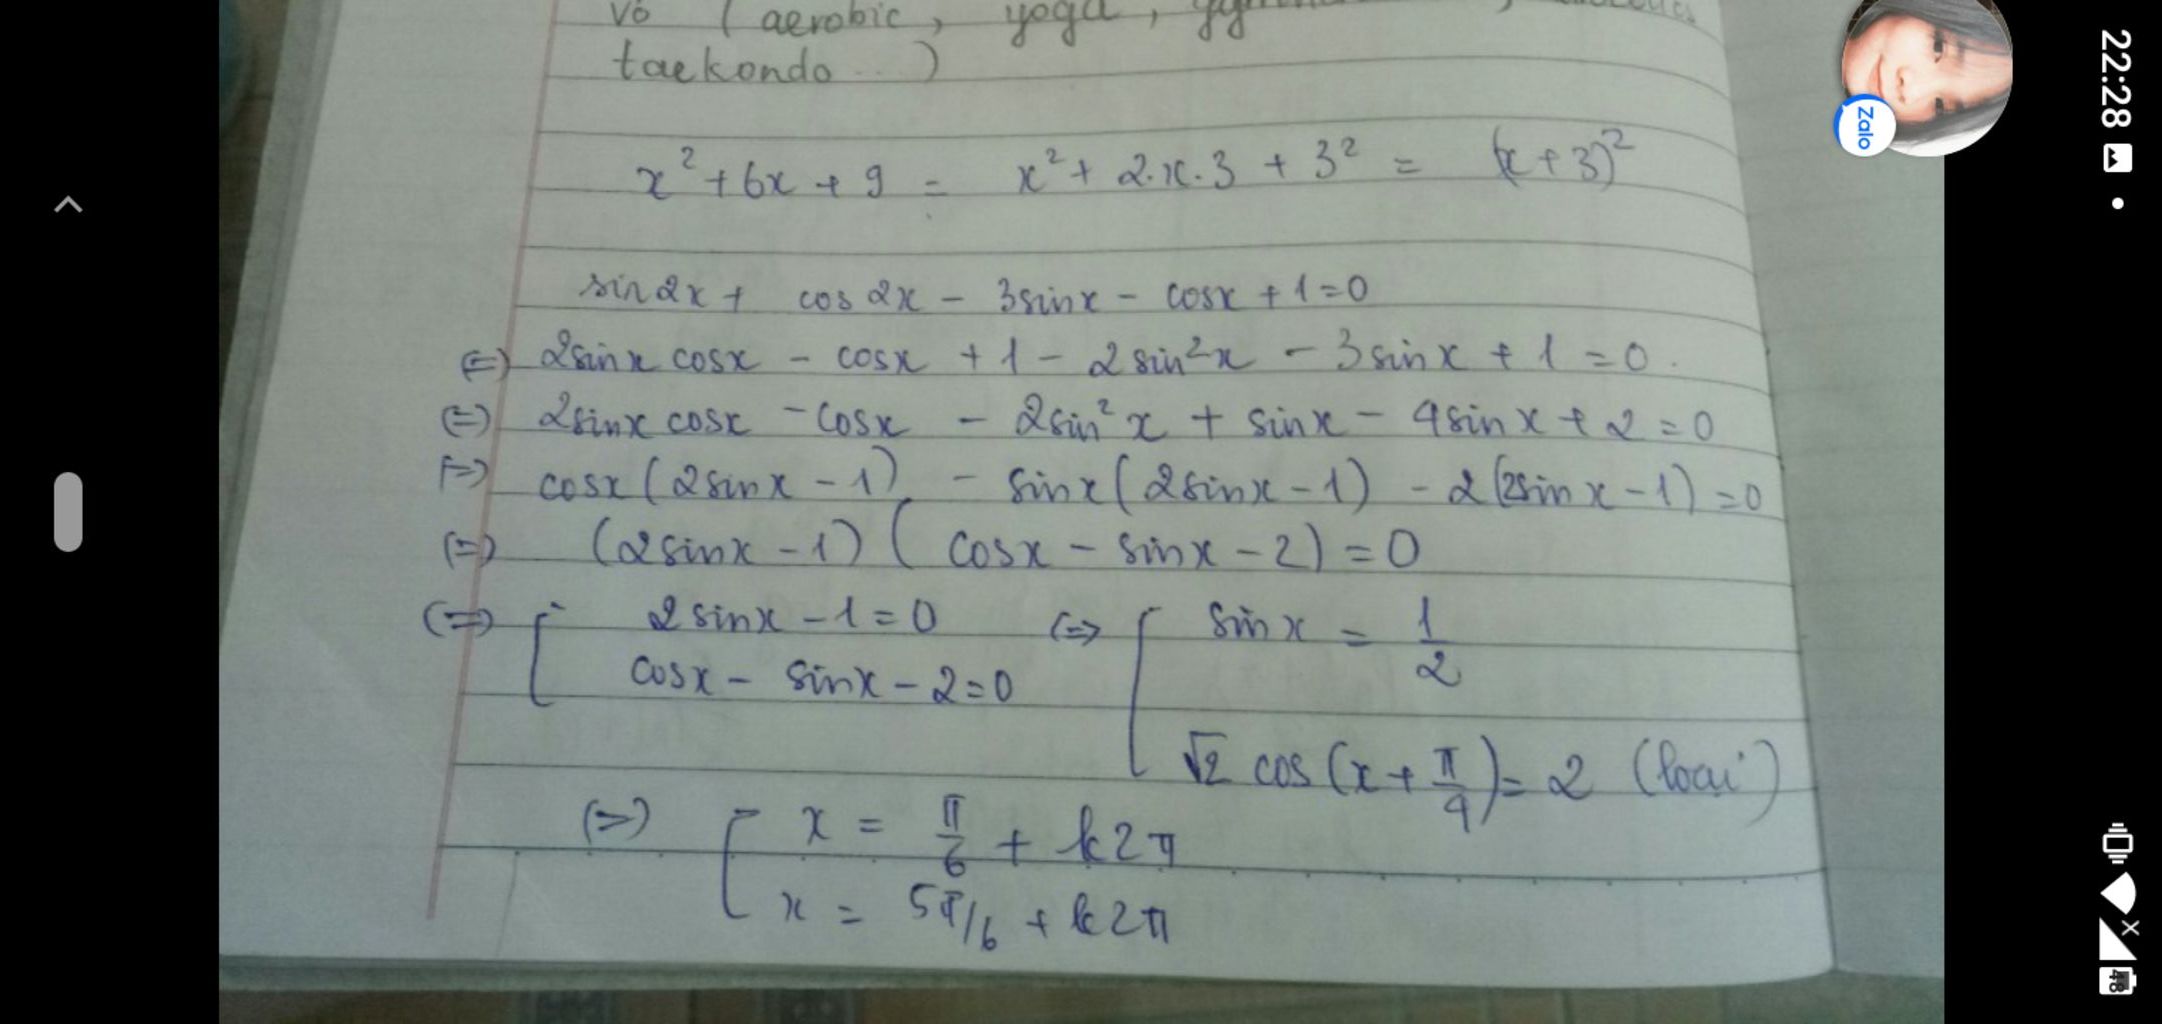 võ (aerobic, yoga,
taekondo...)
x² + 6x + 9 = x² + 2.x.3 + 3² = (x+3)²
sin2x + cos2x - 3sinx - cosx + 1 = 0
(=) 2sinx cosx - cosx + 1 - 2sin²x - 3sinx + 1 = 0.
(=) 2sinx cosx - cosx - 2sin²x + sinx - 4sinx + 2 = 0
(=) cosx(2sinx - 1) - sinx(2sinx - 1) - 2(2sinx - 1) = 0
(=) (2sinx - 1)(cosx - sinx - 2) = 0
(=) [ 2sinx - 1 = 0 (=) [ sinx = 1/2
cosx - sinx - 2 = 0
√2 cos(x + π/4) = 2 (loại)
(=) [ x = π/6 + k2π
x = 5π/6 + k2π
Zalo
22:28
48